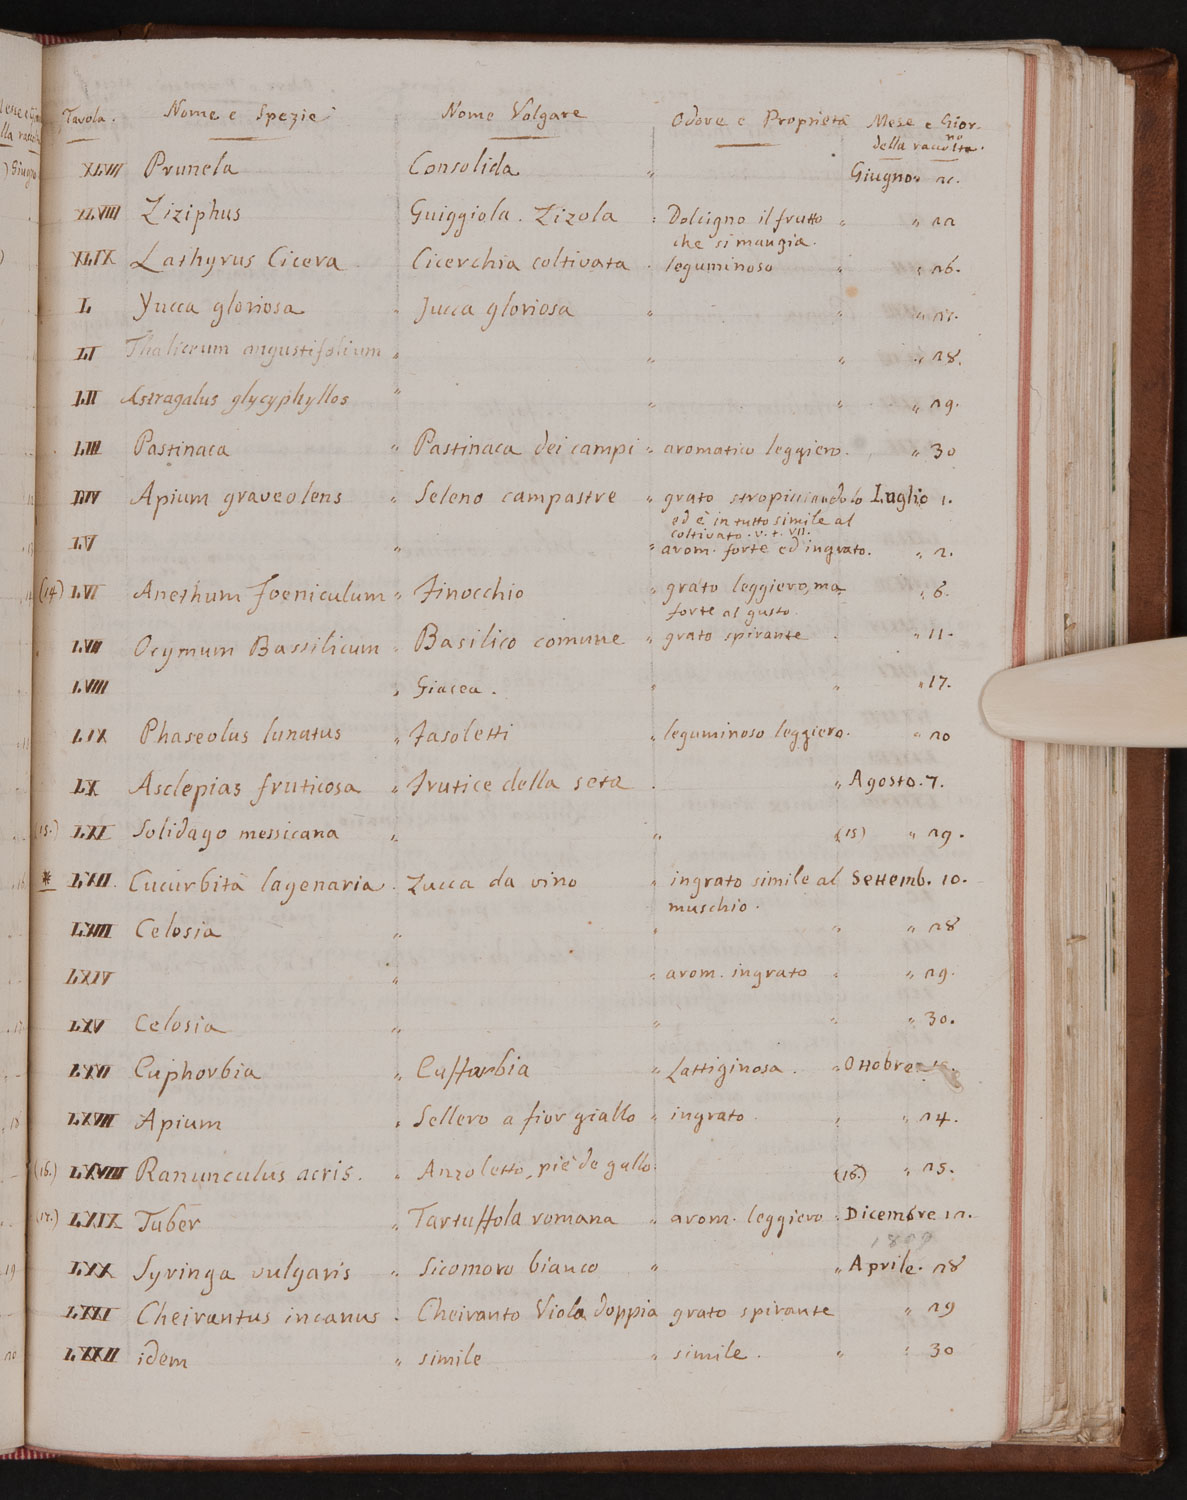 Tavola. Nome e Spezie Nome Volgare Odore e Proprietà Mese e Gior-
no
della raccolta.
XLVII Prunela Consolida " Giugno "
XLVIII Ziziphus Guiggiola. Zizola : Dolcigno il frutto " "
che si mangia.
XLIX Lathyrus Cicera Cicerchia coltivata . leguminoso " " 26.
L Yucca gloriosa . Jucca gloriosa " " "
LI Thalictrum angustifolium " " " " 28.
LII Astragalus glycyphyllos " " " " 29.
LIII Pastinaca " Pastinaca dei campi " aromatico leggiero. " 30
LIV Apium graveolens " Seleno campastre " grato stropicciandolo Luglio 1.
ed è in tutto simile al
coltivato. v. t. VII.
LV " " arom. forte ed ingrato. " 2.
(14) LVI Anethum foeniculum " Finocchio " grato leggiero, ma " 6.
forte al gusto.
LVII Ocymum Bassilicum " Basilico comune " grato spirante . " 11.
LVIII " Giacea. " " " 17.
LIX Phaseolus lunatus " Fasoletti " leguminoso leggiero. " 20
LX Asclepias fruticosa " Frutice della seta . " Agosto. 7.
(15.) LXI Solidago messicana " " (15) " 29.
* LXII. Cucurbita lagenaria . Zucca da vino " ingrato simile al Settemb. 10.
muschio.
LXIII Celosia " " " " 28
LXIV " " arom. ingrato . " 29.
LXV Celosia " " " " 30.
LXVI Euphorbia " Euffarbia " Lattiginosa. " Ottobre
LXVII Apium " Sellero a fior giallo " ingrato. " " 24.
(16.) LXVIII Ranunculus acris. " Anzoletto, piè de gallo. (16.) " 25.
(17.) LXIX Tuber " Tartuffola romana " arom. leggiero . Dicembre 12.
1809
LXX Syringa vulgaris " Sicomoro bianco " " Aprile. 28
LXXI Cheirantus incanus . Cheiranto Viola doppia grato spirante " 29
LXXII idem " simile " simile. " " 30